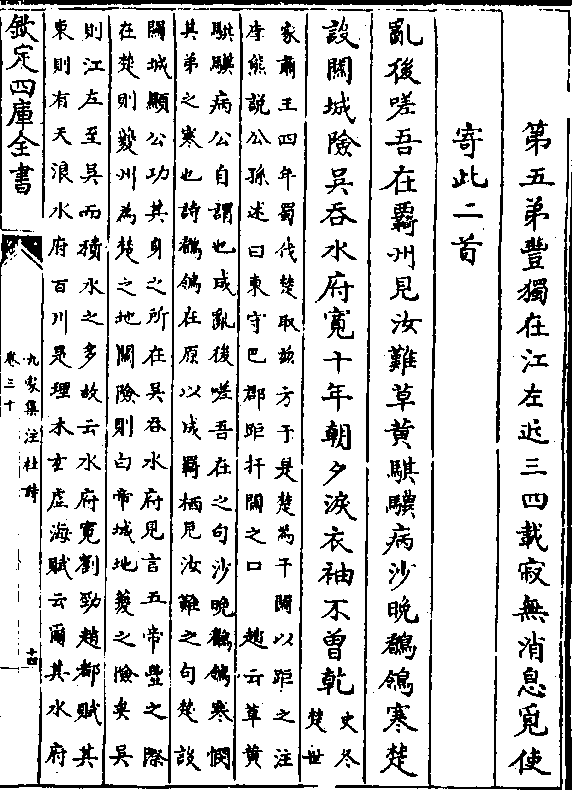 第五弟豐獨在江左近三四載寂無消息覓使
寄此二首
亂後嗟吾在羈栖見汝難草黄騏驥病沙晚鶺鴒寒楚
設關城險吳吞水府寬十年朝夕淚衣袖不曾乾
史冬
楚世
家肅王四年蜀伐楚取茲方于是楚為干關以距之注
李熊說公孫述曰東守巴郡距扞關之口 趙云草黄
騏驥病公自謂也成亂後嗟吾在之句沙晚鶺鴒寒憫
其弟之寒也詩鶺鴒在原以成羇栖見汝難之句楚設
關城顯公功其身之所在吳吞水府見言五帝豐之際
在楚則夔州為楚之地關險則白帝城地夔之險矣吳
則江左至吳而積水之多故云水府寬劉劭趙都賦其
東則有天浪水府百川是理木玄虛海賦云爾其水府
欽定四庫全書
九家集注杜詩
卷三十
十四